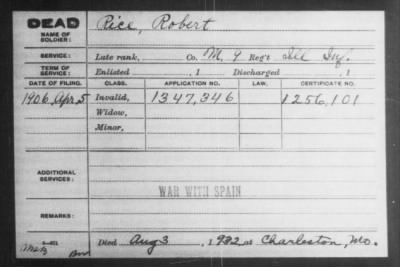 DEAD
NAME OF SOLDIER: Rice, Robert
SERVICE: Late rank, Co. M, 9 Reg't Ill Inf.
TERM OF SERVICE: Enlisted , 1 Discharged , 1
DATE OF FILING. CLASS. APPLICATION NO. LAW. CERTIFICATE NO.
1906, Apr. 5 Invalid, 1347,346 1256,101
Widow,
Minor,
ADDITIONAL SERVICES:
WAR WITH SPAIN
REMARKS:
Died Aug 3 , 1932 at Charleston, Mo.